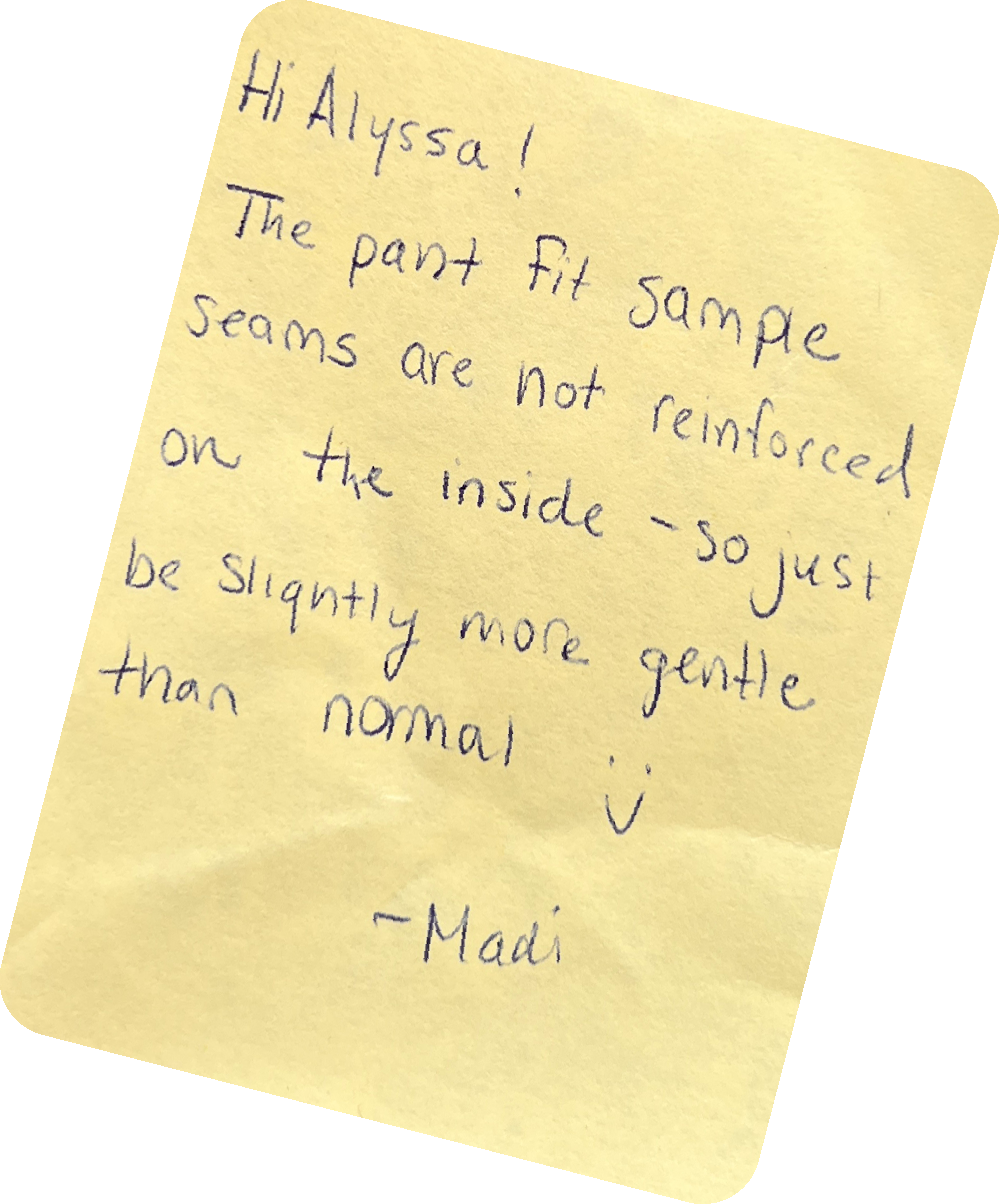 Hi Alyssa!
The pant fit sample
seams are not reinforced
on the inside - so just
be slightly more gentle
than normal :)
- Madi